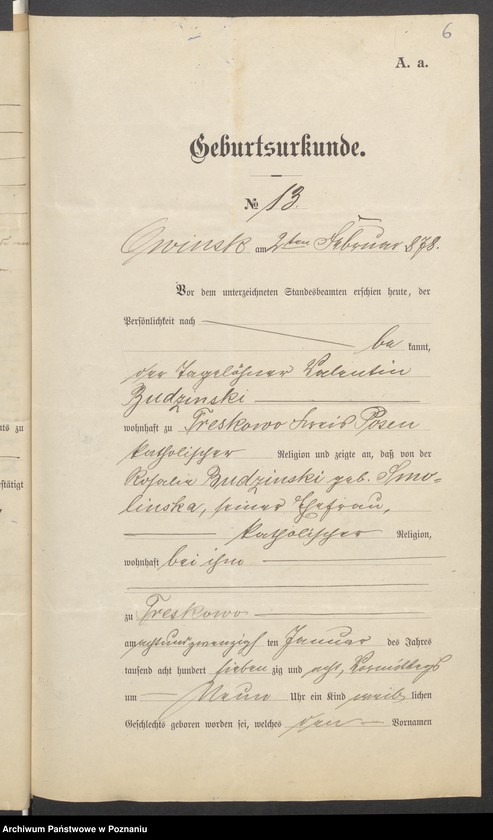 6
A. a.
Geburtsurkunde.
№ 13.
Owinsk am 2ten Februar 1878.
Vor dem unterzeichneten Standesbeamten erschien heute, der
Persönlichkeit nach
be kannt,
der Tagelöhner Valentin
Budzinski
wohnhaft zu Treskowo Kreis Posen
katholischer Religion und zeigte an, daß von der
Rosalie Budzinski geb. Smo-
linska, seiner Ehefrau,
katholischer Religion,
wohnhaft bei ihm
zu Treskowo
am achtundzwanzigsten Januar des Jahres
tausend acht hundert sieben zig und acht, Vormittags
um Neun Uhr ein Kind weib lichen
Geschlechts geboren worden sei, welches den Vornamen
ts zu
stätigt
Archiwum Państwowe w Poznaniu